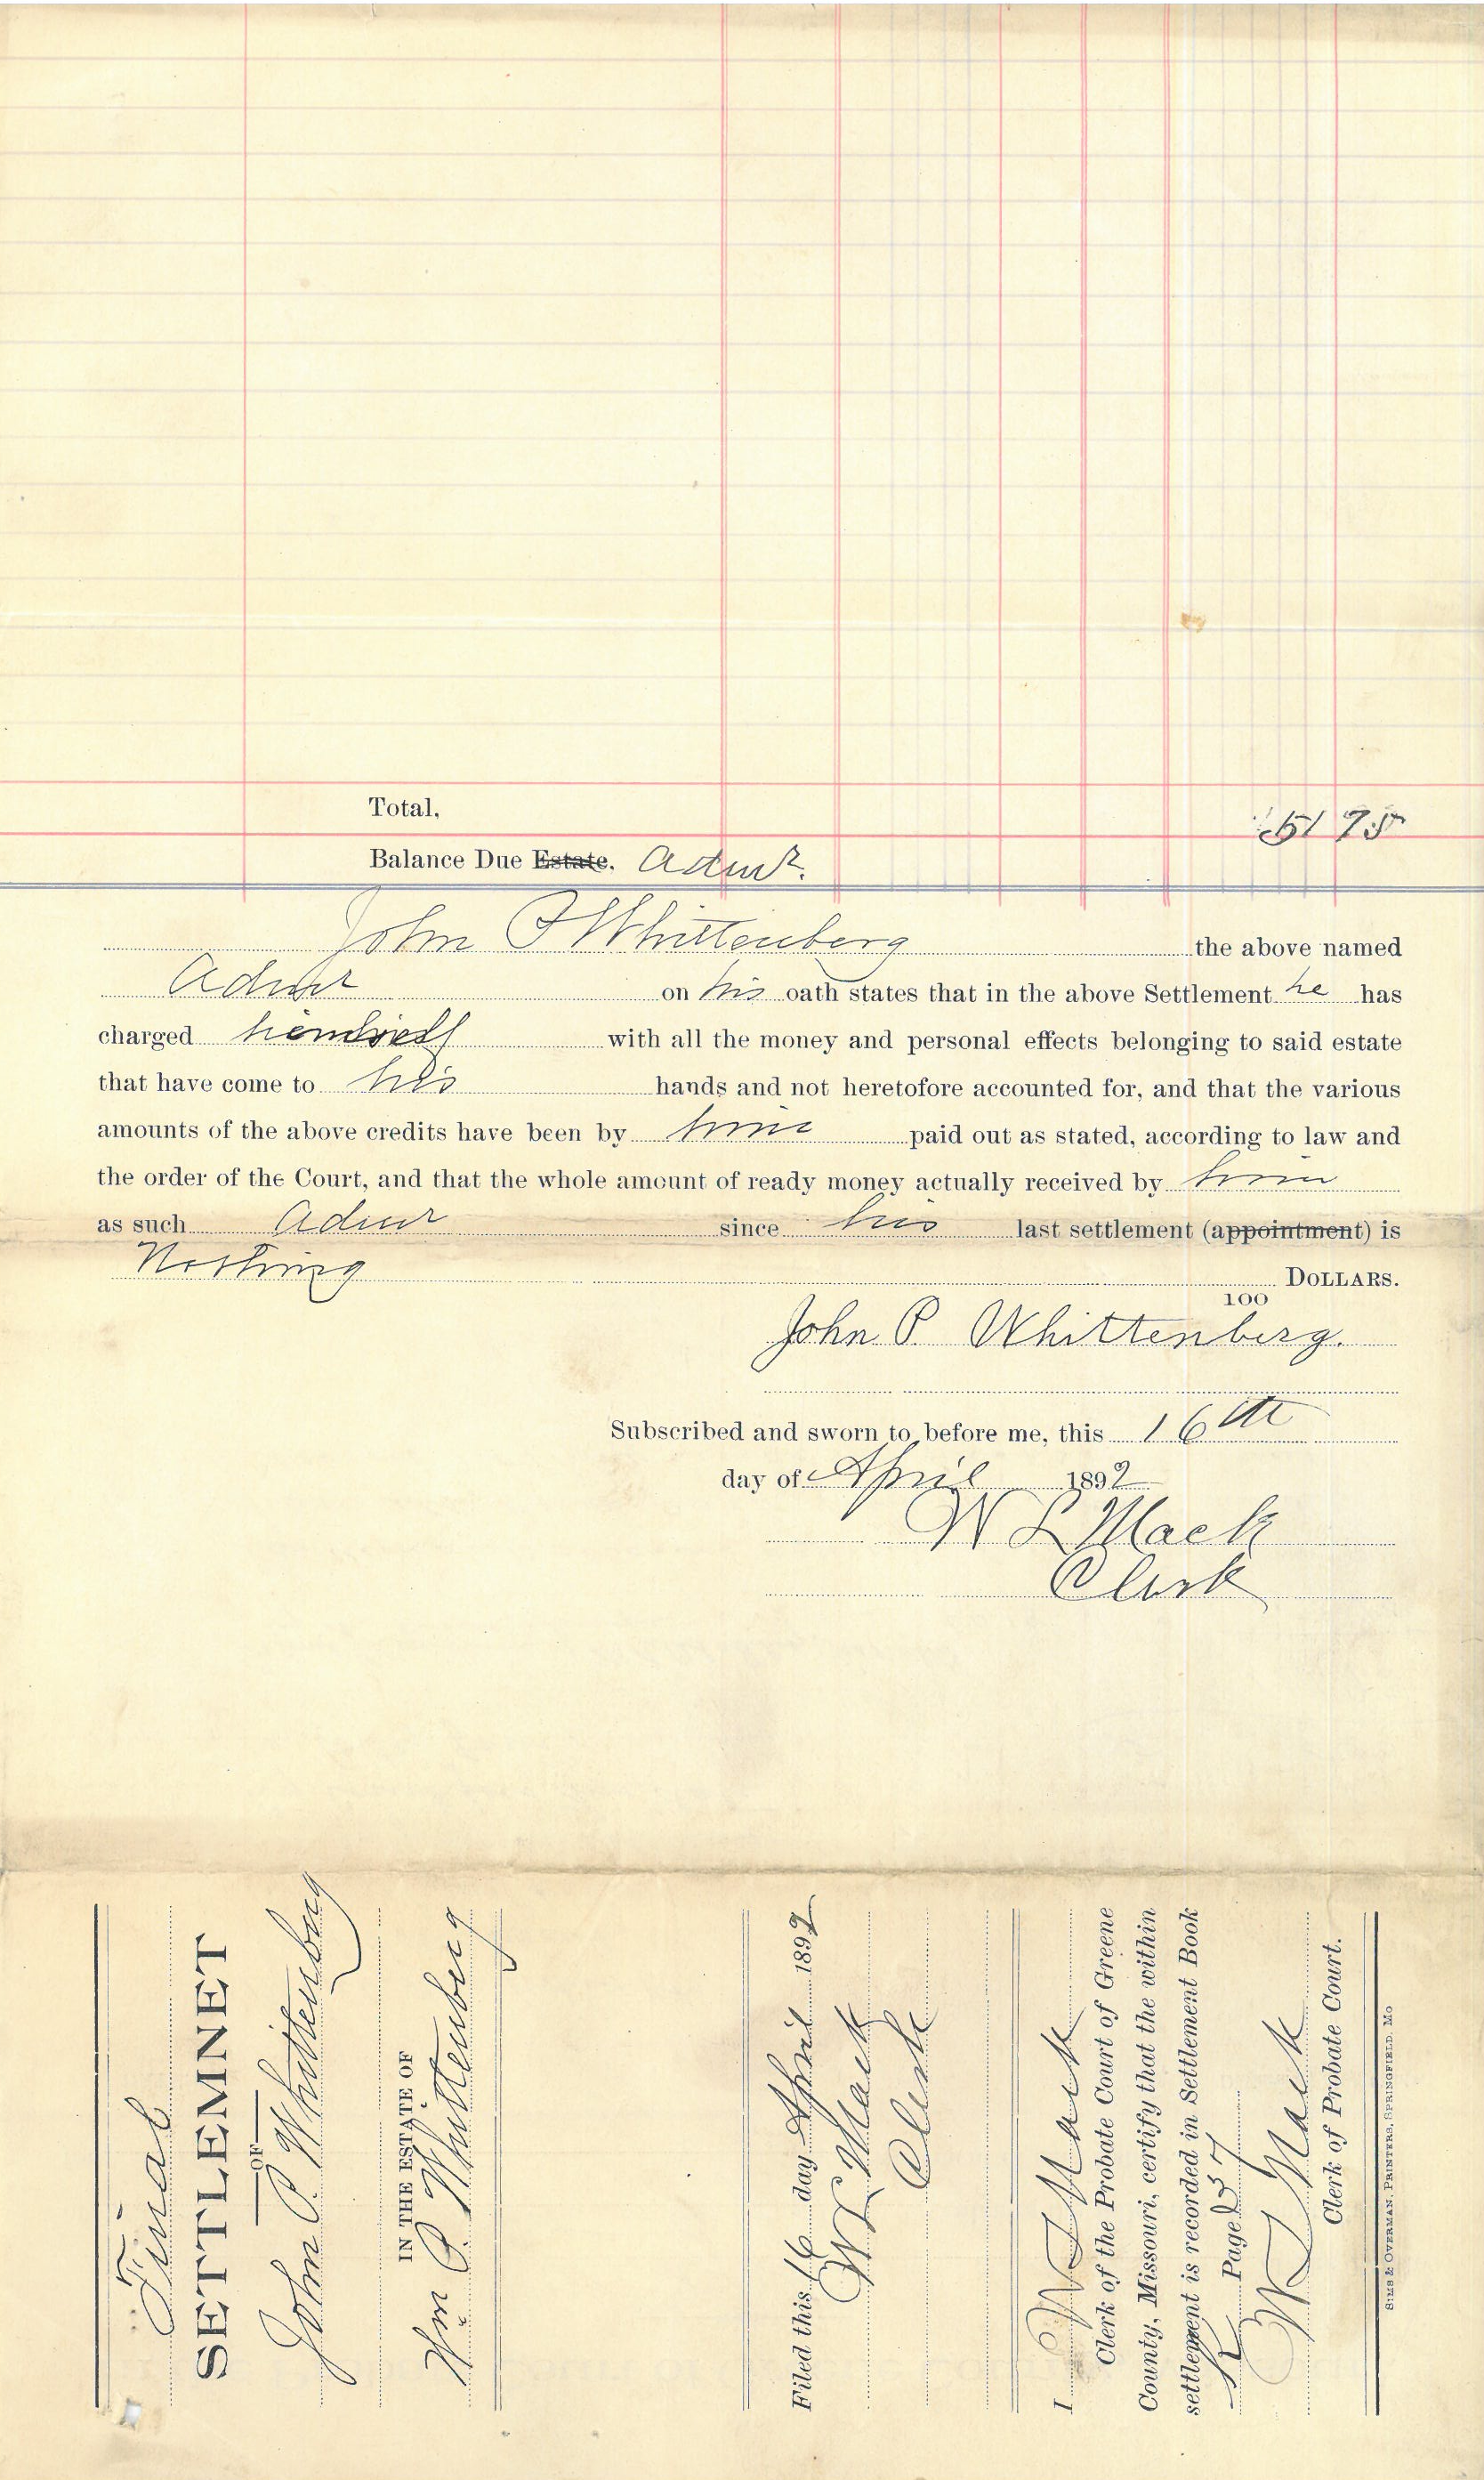 Total,
51 75
Balance Due Estate. Admr.
John P Whittenberg the above named
Admr on his oath states that in the above Settlement he has
charged himself with all the money and personal effects belonging to said estate
that have come to his hands and not heretofore accounted for, and that the various
amounts of the above credits have been by him paid out as stated, according to law and
the order of the Court, and that the whole amount of ready money actually received by him
as such Admr since his last settlement (appointment) is
Nothing DOLLARS.
100
John P. Whittenberg.
Subscribed and sworn to before me, this 16th
day of April 1892
W L Mack
Clerk
Final
SETTLEMNET
OF
John P. Whittenberg
IN THE ESTATE OF
Wm C. Whittenberg
Filed this 16 day April 1892
W L Mack
Clerk
I W L Mack
Clerk of the Probate Court of Greene
County, Missouri, certify that the within
settlement is recorded in Settlement Book
K Page 257
W L Mack
Clerk of Probate Court.
SIMS & OVERMAN, PRINTERS, SPRINGFIELD, MO